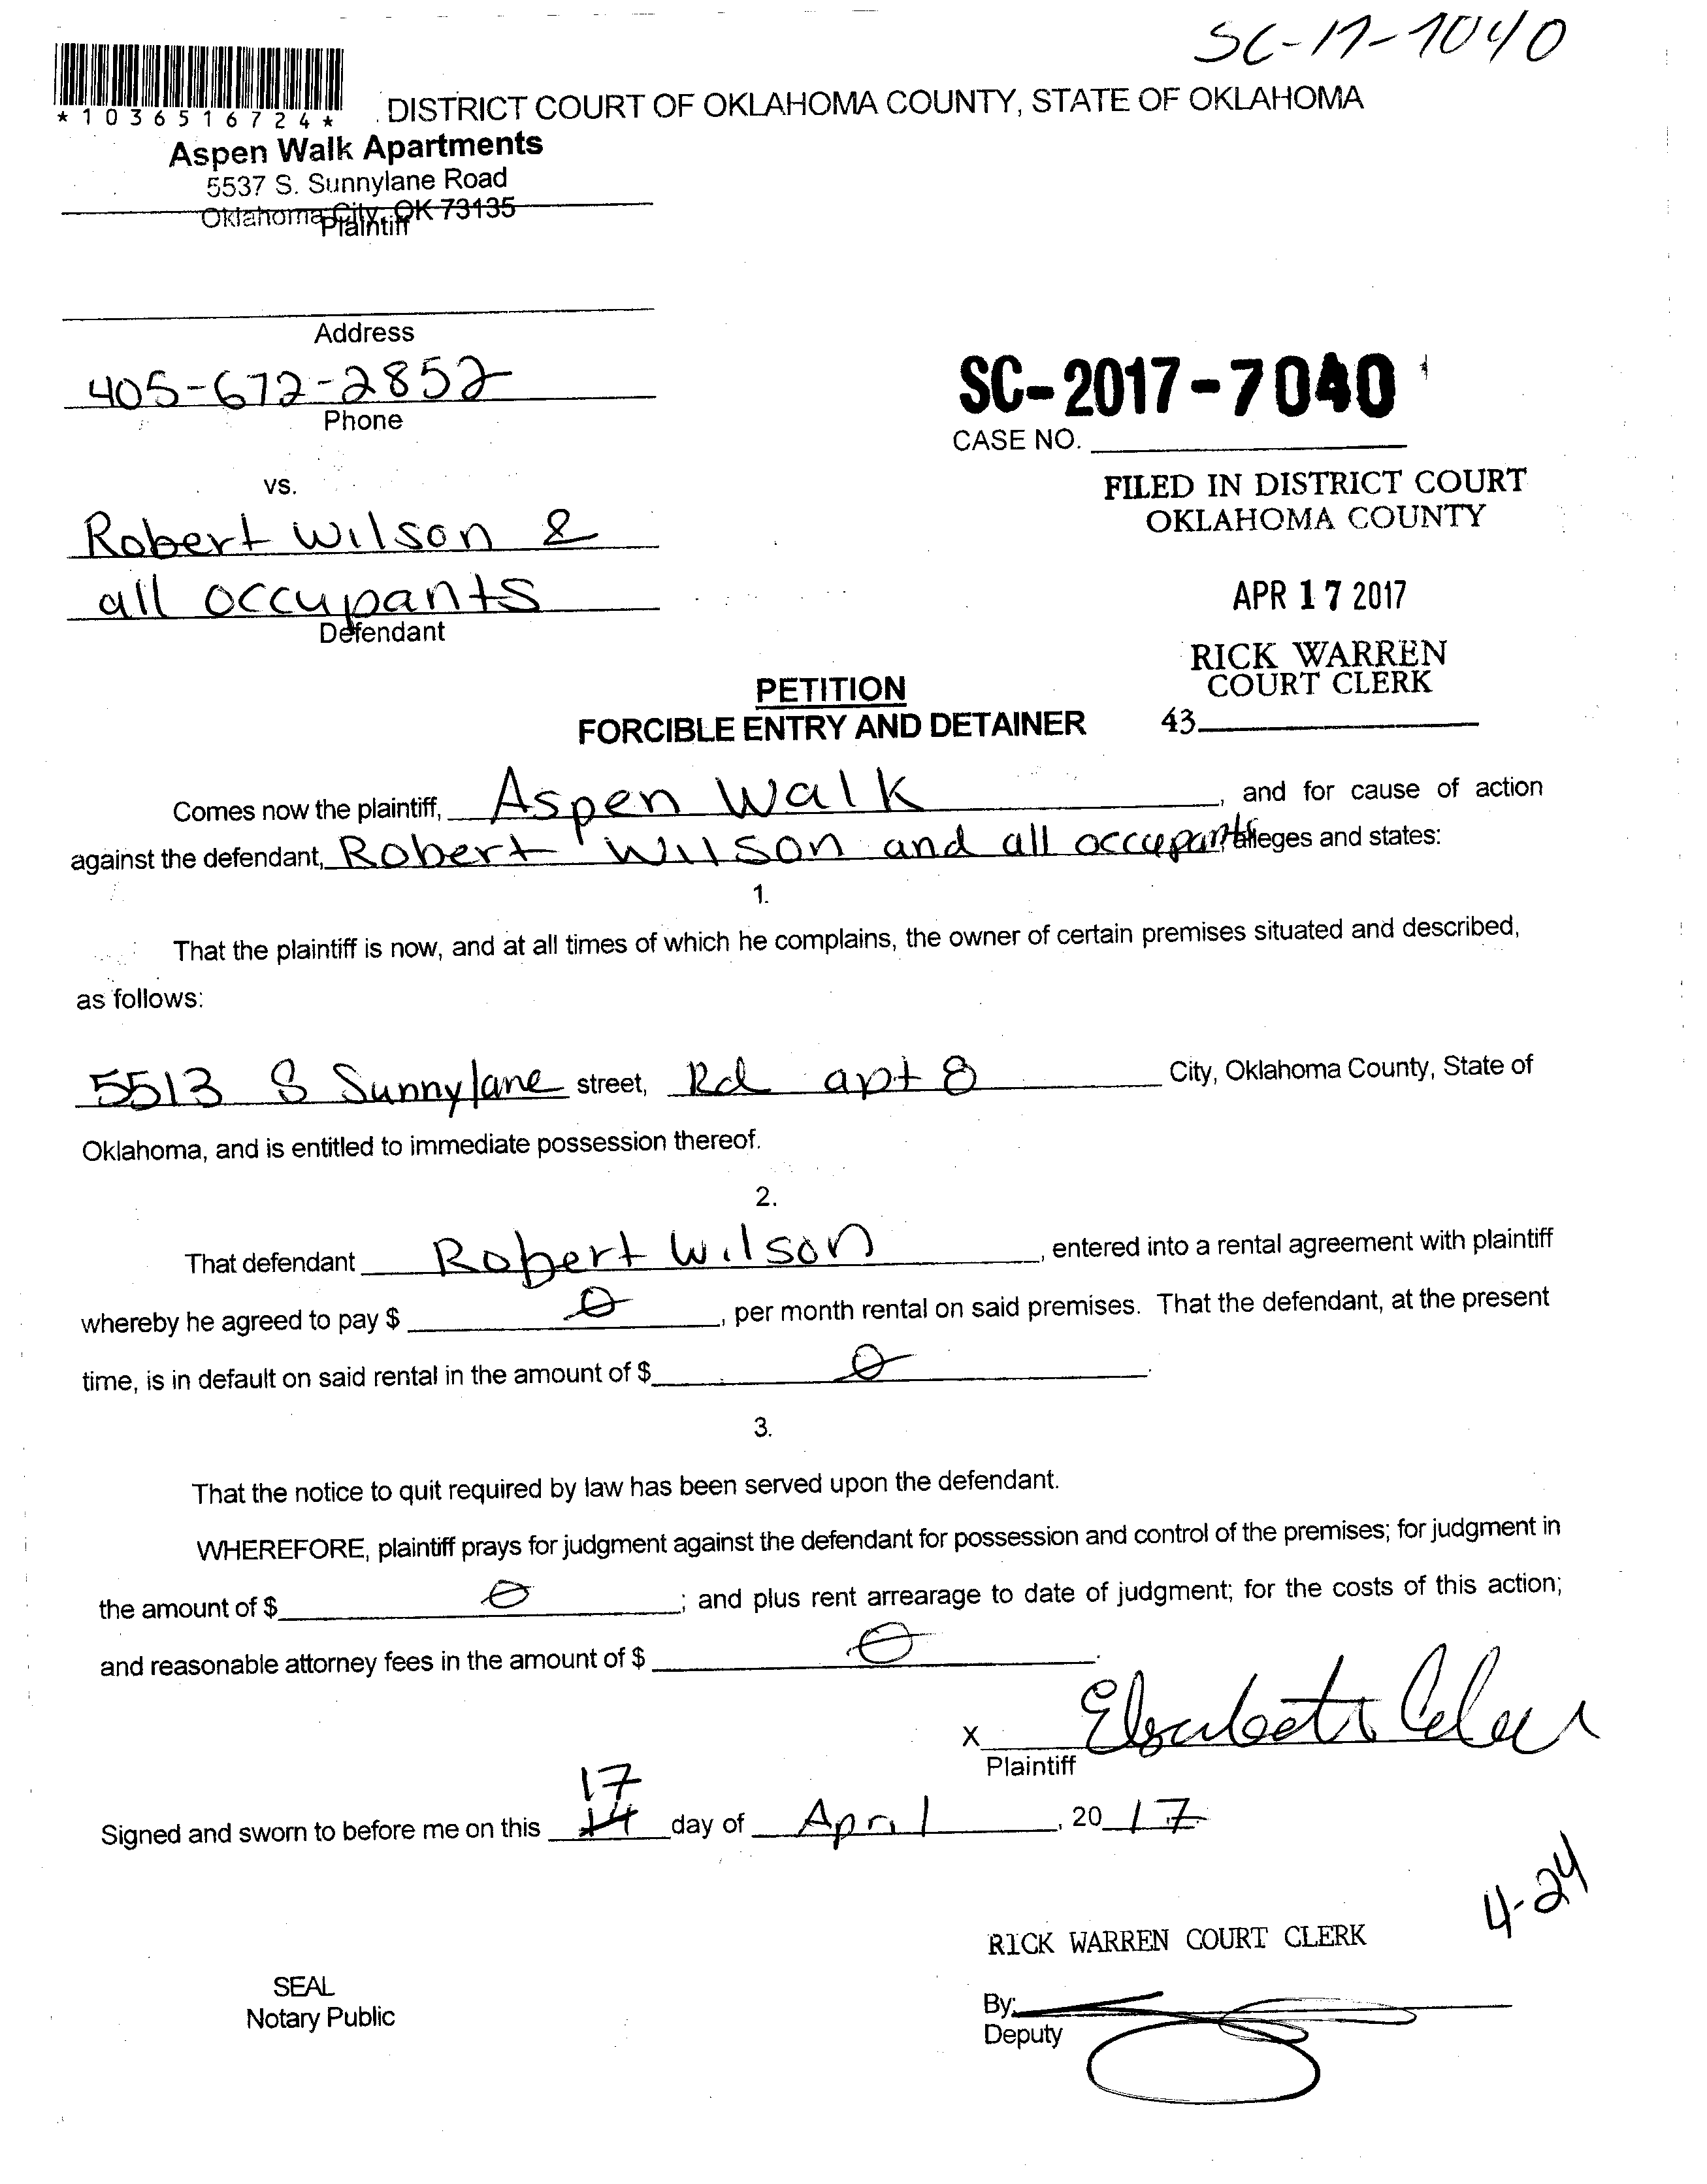 SC-17-7040
*1036516724*
DISTRICT COURT OF OKLAHOMA COUNTY, STATE OF OKLAHOMA
Aspen Walk Apartments
5537 S. Sunnylane Road
Oklahoma City, OK 73135
Plaintiff
Address
405-672-2852
Phone
SC-2017-7040
CASE NO.
vs.
FILED IN DISTRICT COURT
OKLAHOMA COUNTY
Robert Wilson &
all occupants
Defendant
APR 17 2017
RICK WARREN
COURT CLERK
43
PETITION
FORCIBLE ENTRY AND DETAINER
Comes now the plaintiff, Aspen Walk, and for cause of action
against the defendant, Robert Wilson and all occupants alleges and states:
1.
That the plaintiff is now, and at all times of which he complains, the owner of certain premises situated and described,
as follows:
5513 S Sunnylane street, Rd apt 8 City, Oklahoma County, State of
Oklahoma, and is entitled to immediate possession thereof.
2.
That defendant Robert Wilson, entered into a rental agreement with plaintiff
whereby he agreed to pay $ 0, per month rental on said premises. That the defendant, at the present
time, is in default on said rental in the amount of $ 0.
3.
That the notice to quit required by law has been served upon the defendant.
WHEREFORE, plaintiff prays for judgment against the defendant for possession and control of the premises; for judgment in
the amount of $ 0; and plus rent arrearage to date of judgment; for the costs of this action;
and reasonable attorney fees in the amount of $ 0.
X
Plaintiff
17
Signed and sworn to before me on this 14 day of April, 2017
4-24
RICK WARREN COURT CLERK
SEAL
Notary Public
By:
Deputy